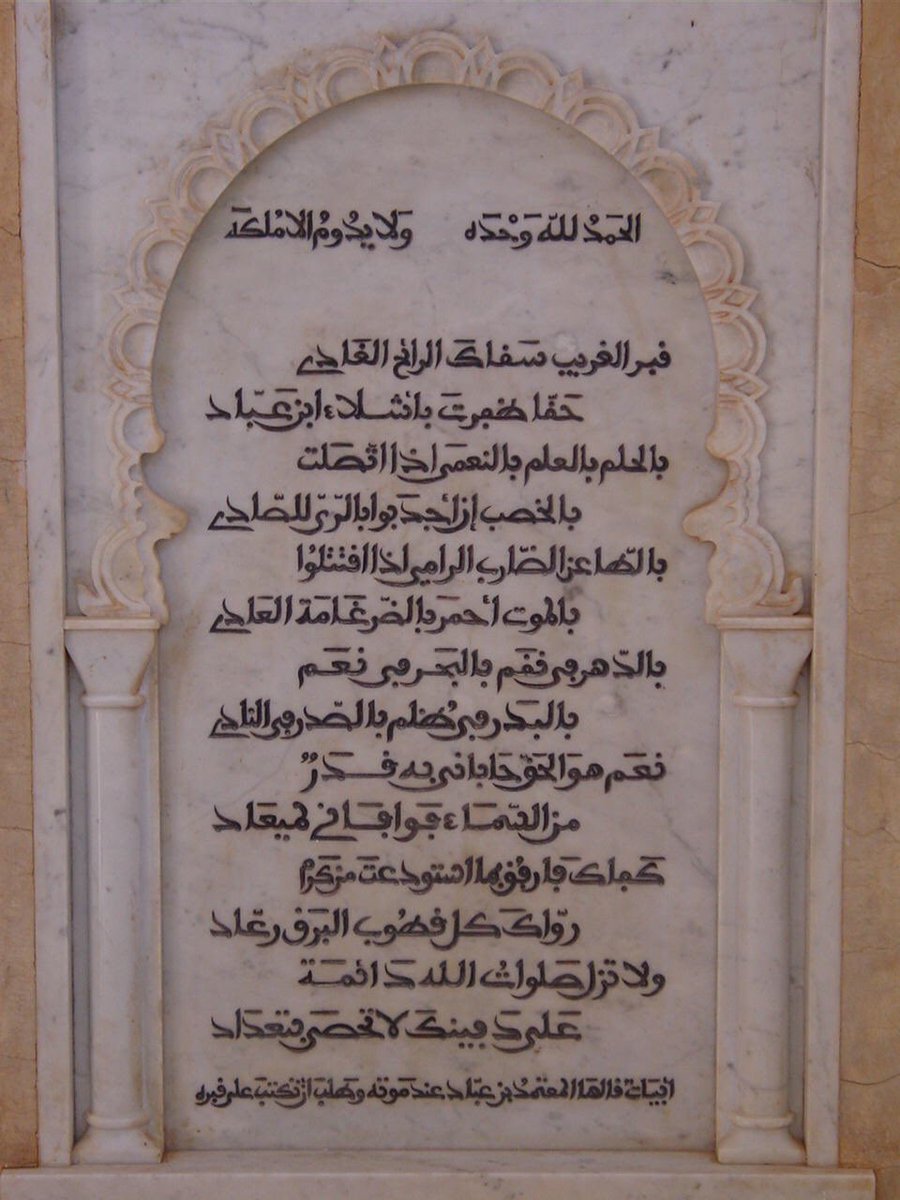 الحَمدُ للّه وَحْدَه وَلا يدُومُ الا مُلكَه
قبر الغريب سَقاكَ الرائح الغَادِي
حَقّا ظفِرتَ بأشلاء ابن عَبّاد
بالحلم بالعلم بالنعمَى إذا اتّصَلت
بالخصب إن أجدَبوا بالرّيّ للصّادِي
بالطّاعن الضّارب الرامي إذا اقتتلُوا
بالموت أحمرَ بالضّرغَامَة العَادِي
بالدّهر في نقَم بالبَحر في نعَم
بالبَدر في ظُلم بالصّدر في النادِي
نعَم هوَ الحَقّ حَاباني به قَدَرٌ
من السّمَاء فَوافَاني لميعَاد
كَفاك فَارفُق بما استودعتَ من كرَم
روّاكَ كل قطُوب البَرق رعّاد
ولا تزل صَلواتُ الله دَائمَة
عَلى دَفينكَ لا تحصَى بتعدَاد
أبيَات قالها المعتمدُ بن عبّاد عند مَوته وطَلبَ أن تكتبَ على قبره